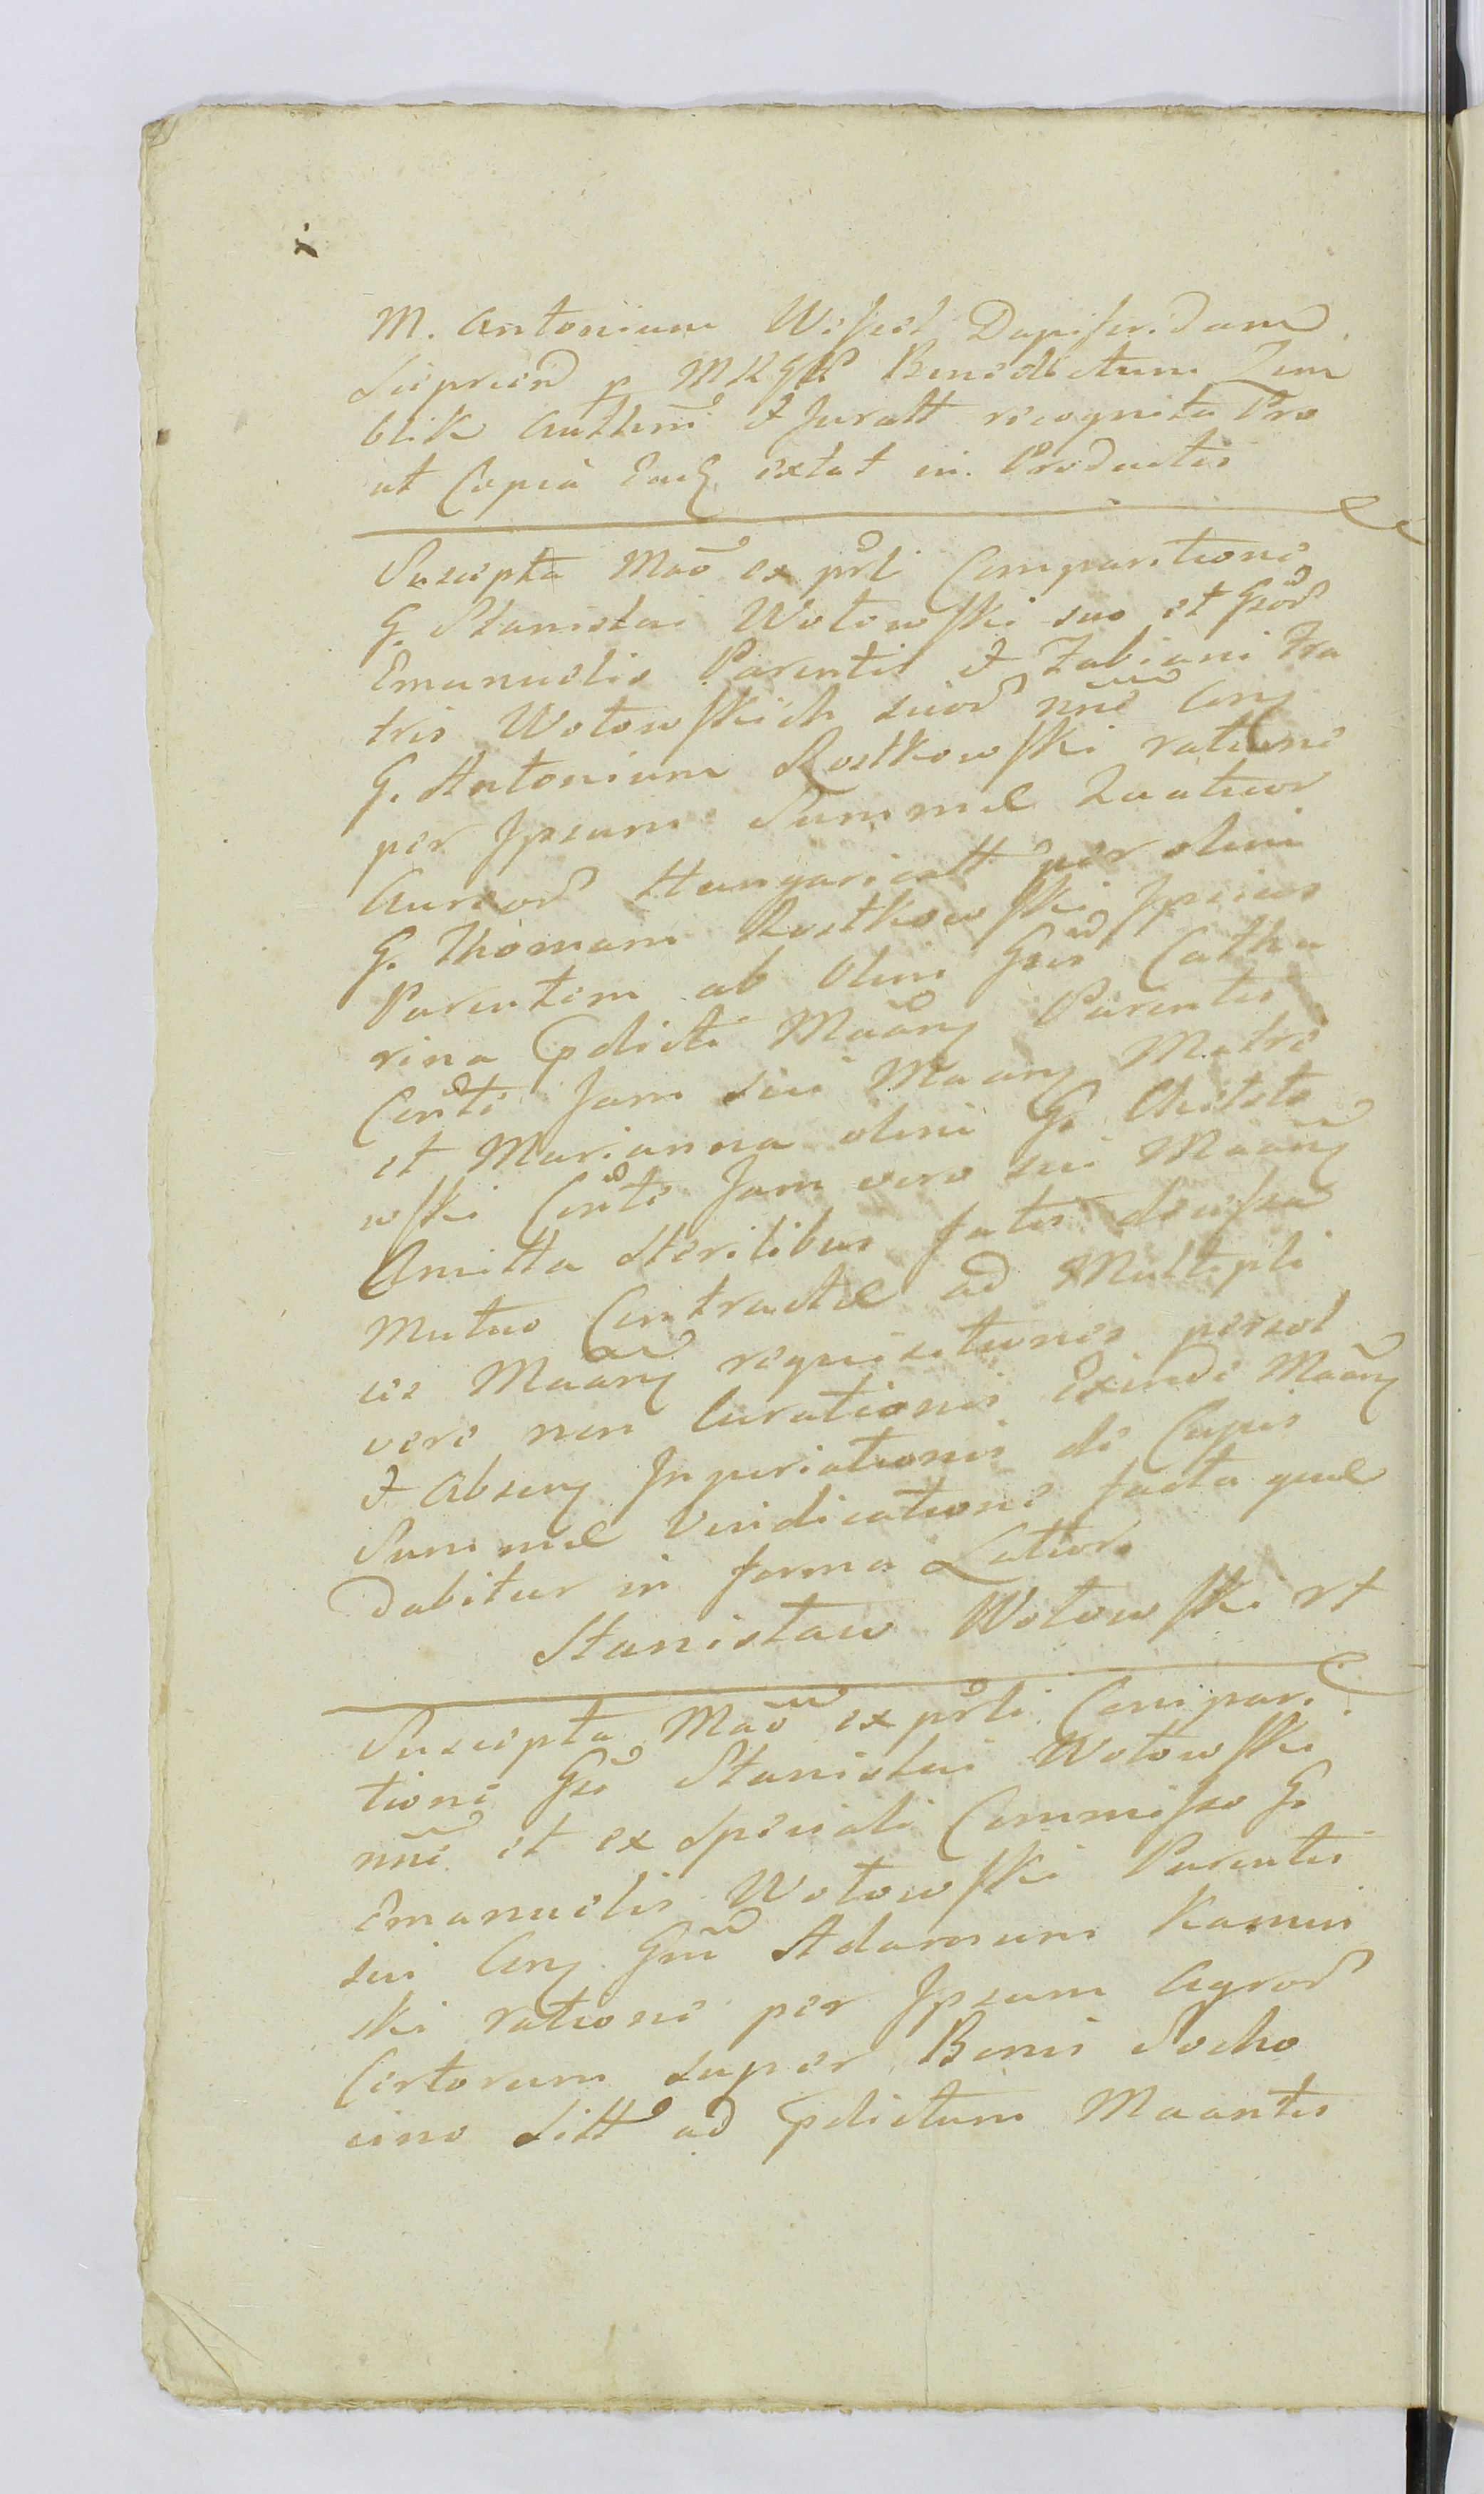 M. Antonium Wessel Dapiferidam
p MRGR Benedictum Zem
blik Authmi et Juratt recognita Pro
ut Copia Eaq extat in Productis
Suscepta Mao ex prli Comparitione
G. Stanislai Wotowski suo et Gsor
Emanuelis Parentis et Fabiani Fra
tris Wotowskich suor nne Con
G. Antonium Rostkowski ratione
per Ipsum Summæ Quatuor
Aureor Hungaricatt per olim
G. Thomam Rostkowski Ipsius
Parentem ab Olim Gsis Catha
rina pdicti Maan Parentis
Conti Jam sui Maan Matre
et Marianna olim G.
wski Conti Jam vero sui Maan
Amitta sterilibus fatis decessa
Mutuo Contractæ ad Multipli
ces Maan requisitiones persol
vere non Curationis Exinde Maan
et Absen Injuriationis de Cujus
Summæ Vindicatione facta quæ
Dabitur in forma Latiori
Stanistaw Wotowski rt
Suscepta Mao ex prli Compari
tione Gsi Stanislai Wotowski
nne et ex Speciali Commisso G.
Emanuelis Wotowski Parentis
sui Con Gnm Adamum Kamin
ski ratione per Ipsum Agror
Certorum super Bonis Socho
cino Sitt ad pdictum Maantis